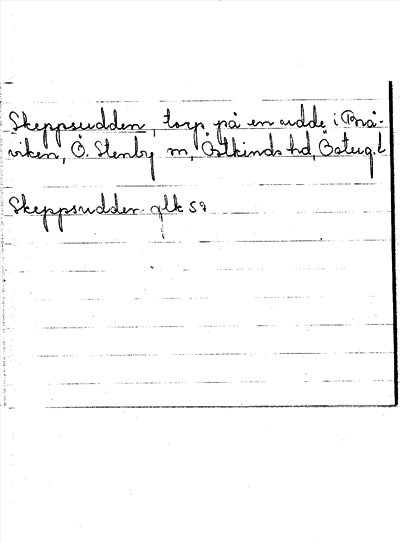 Skeppsudden, torp på en udde i Brå-
viken, Ö. Stenby sn, Östkinds hd, Östergl.
Skeppsudden glk 57